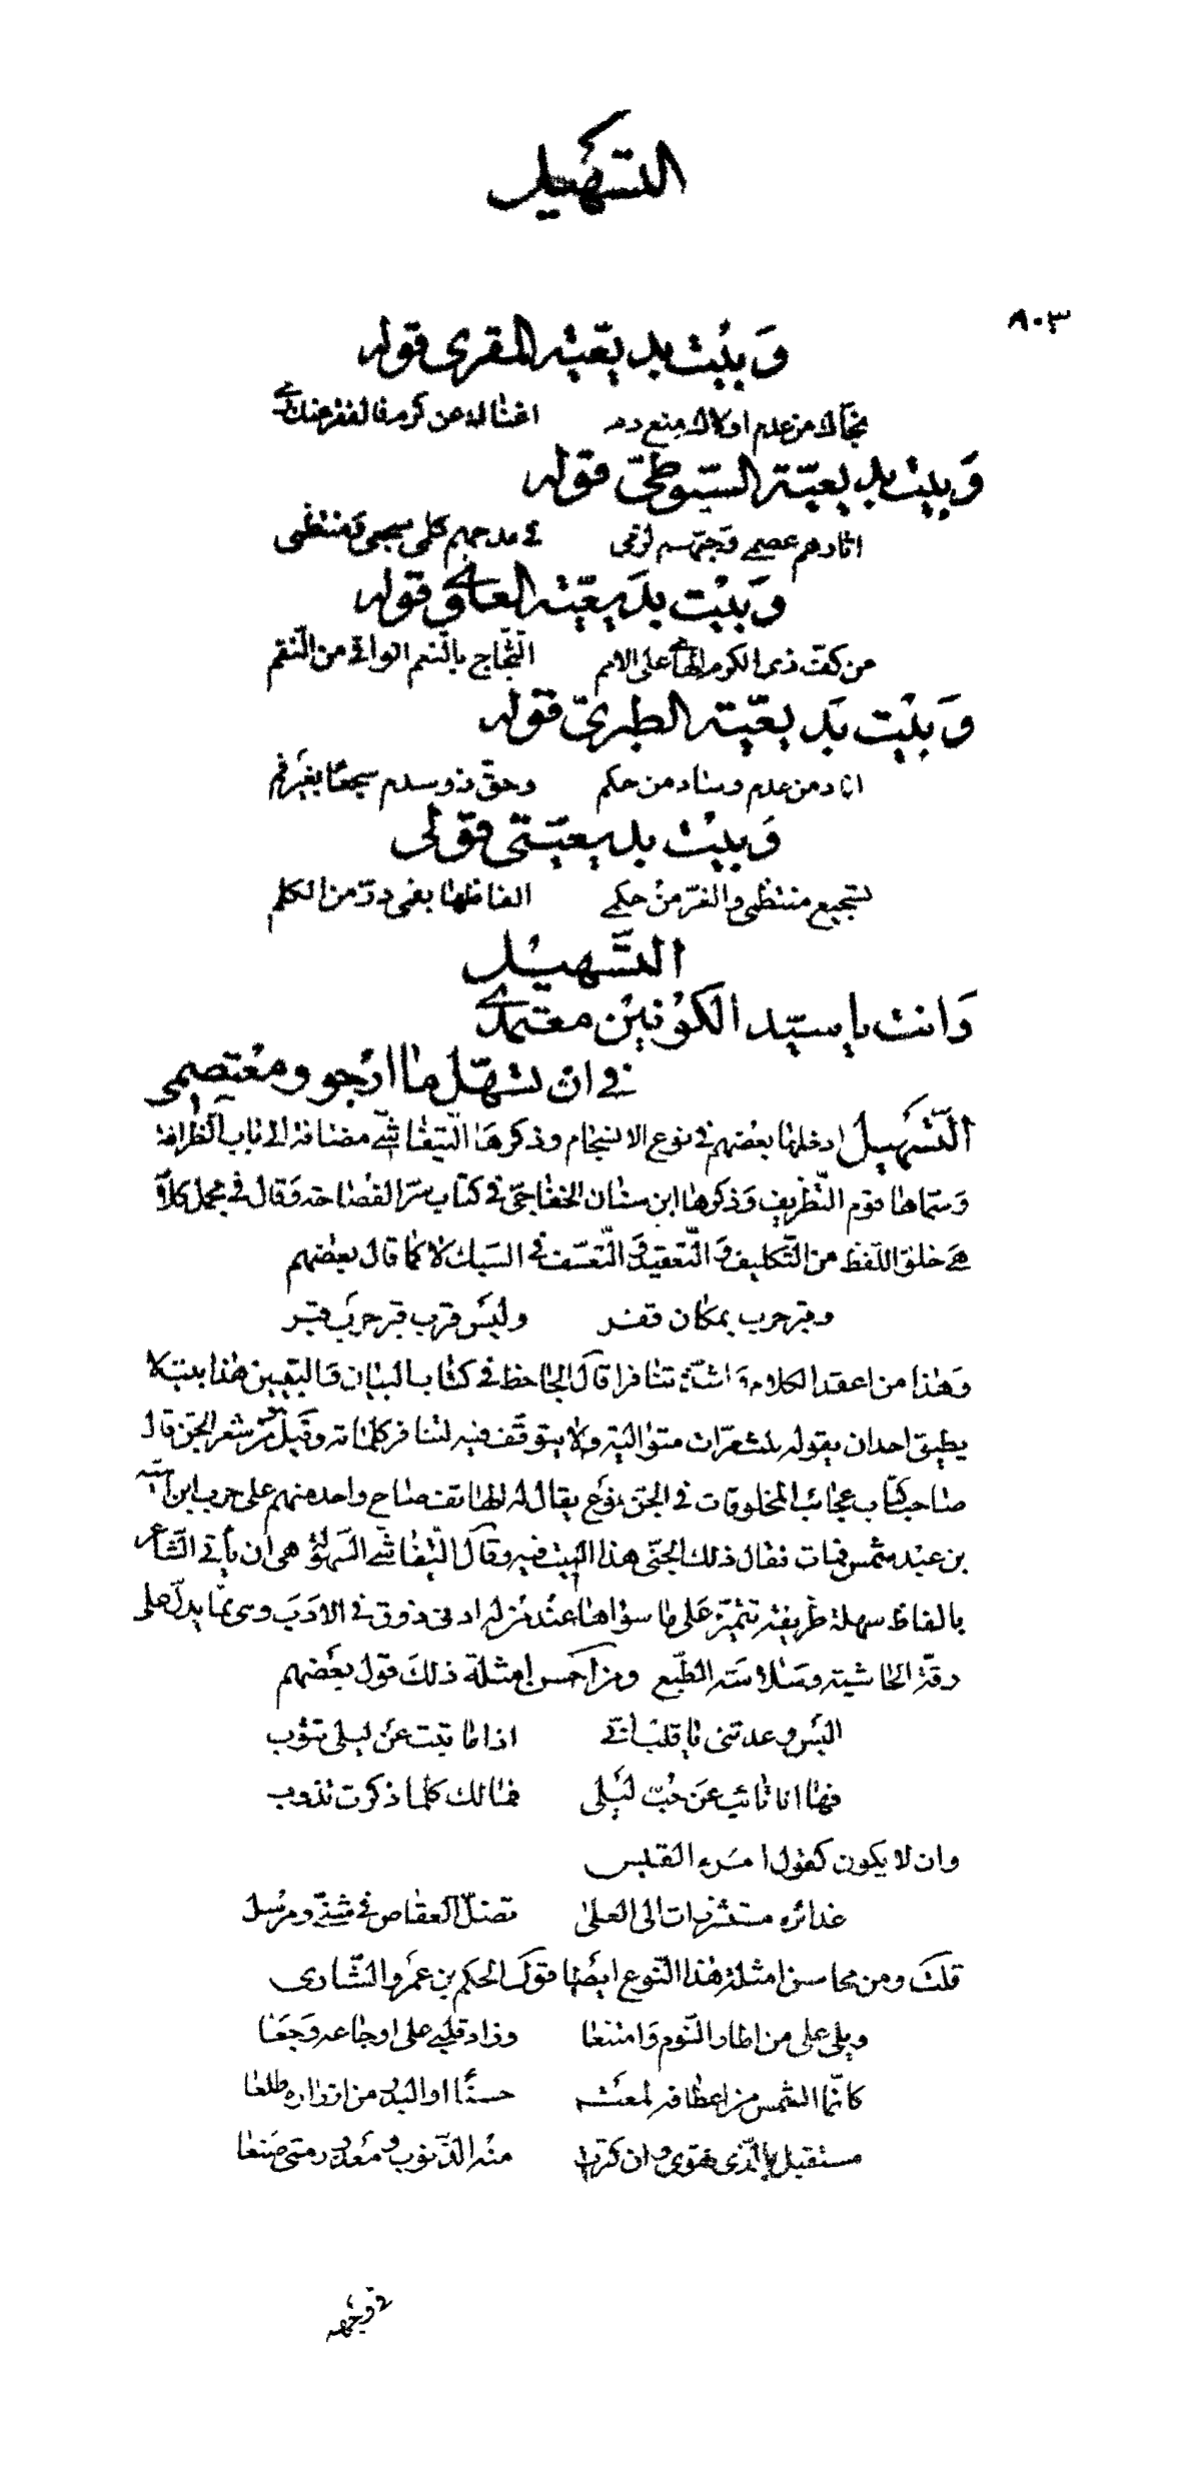 التسهيل
٨٠٣
وبيت بديعية المقرى قوله
نجاك من عدم اولاك منع دم اغناك عن كرم فالفقر عنك
وبيت بديعية السيوطي قوله
اثارهم عصمى وجههم لزمى في مدحهم كلمى سجعى ومنتظمى
وبيت بديعية العلوى قوله
من كف ذى الكرم الهامى على الامم الثجاج بالنعم الواقى من النقم
وبيت بديعية الطبرى قوله
اباد من عدم وساد من حكم وحق ذو سلم سجعا بغير فم
وبيت بديعيتى قولى
تسجيع منتظمى والغر من حكمى الفاظها بفمى در من الكلم
التسهيل
وانت يا سيد الكونين معتمدى
في ان تسهل ما ارجو ومعتصمى
التسهيل ادخلها بعضهم في نوع الانسجام وذكرها التيفاشى مضافة الى باب الظرافة
وسماها قوم التظريف وذكرها ابن سنان الخفاجى في كتاب سر الفصاحة وقال في مجمل كلامه
هى خلو اللفظ من التكليف والتعقيد والتعسف في السبك لا كما قال بعضهم
وقبر حرب بمكان قفر وليس قرب قبر حرب قبر
وهذا من اعقد الكلام واشده تنافرا قال الجاحظ في كتاب البيان والتبيين هذا بيت لا
يطيق احد ان يقوله ثلث مرات متوالية ولا يتوقف فيه لتنافر كلماته وقيل هو من شعر الجن قال
صاحب كتاب عجائب المخلوقات في الجن نوع يقال له الهاتف صاح واحد منهم على حرب ابن امية
بن عبد شمس فمات فقال ذلك الجنى هذا البيت فيه وقال التيفاشى السهولة هى ان يأتى الشاعر
بالفاظ سهلة ظريفة تتميز على ما سواها عند من له ادنى ذوق في الادب وهى مما يدل على
رقة الحاشية وسلاسة الطبع ومن احسن امثلة ذلك قول بعضهم
اليس وعدتنى يا قلب انى اذا ما تبت عن ليلى تتوب
فها انا تائب عن حب ليلى فما لك كلما ذكرت تذوب
وان لا يكون كقول امرء القيس
غدائره مستشزرات الى العلى تضل العقاص في مثنى ومرسل
قلت ومن محاسن امثلة هذا النوع ايضا قول الحكم بن عمرو الشارى
ويلى على من اطار النوم وامتنعا وزاد قلبى على اوجاعه وجعا
كانما الشمس من اعطافه لمعت حسنا او البدر من ازراره طلعا
مستقبل بالذى يهوى وان كثرت منه الذنوب ومعذور متى صنعا
في وجهه